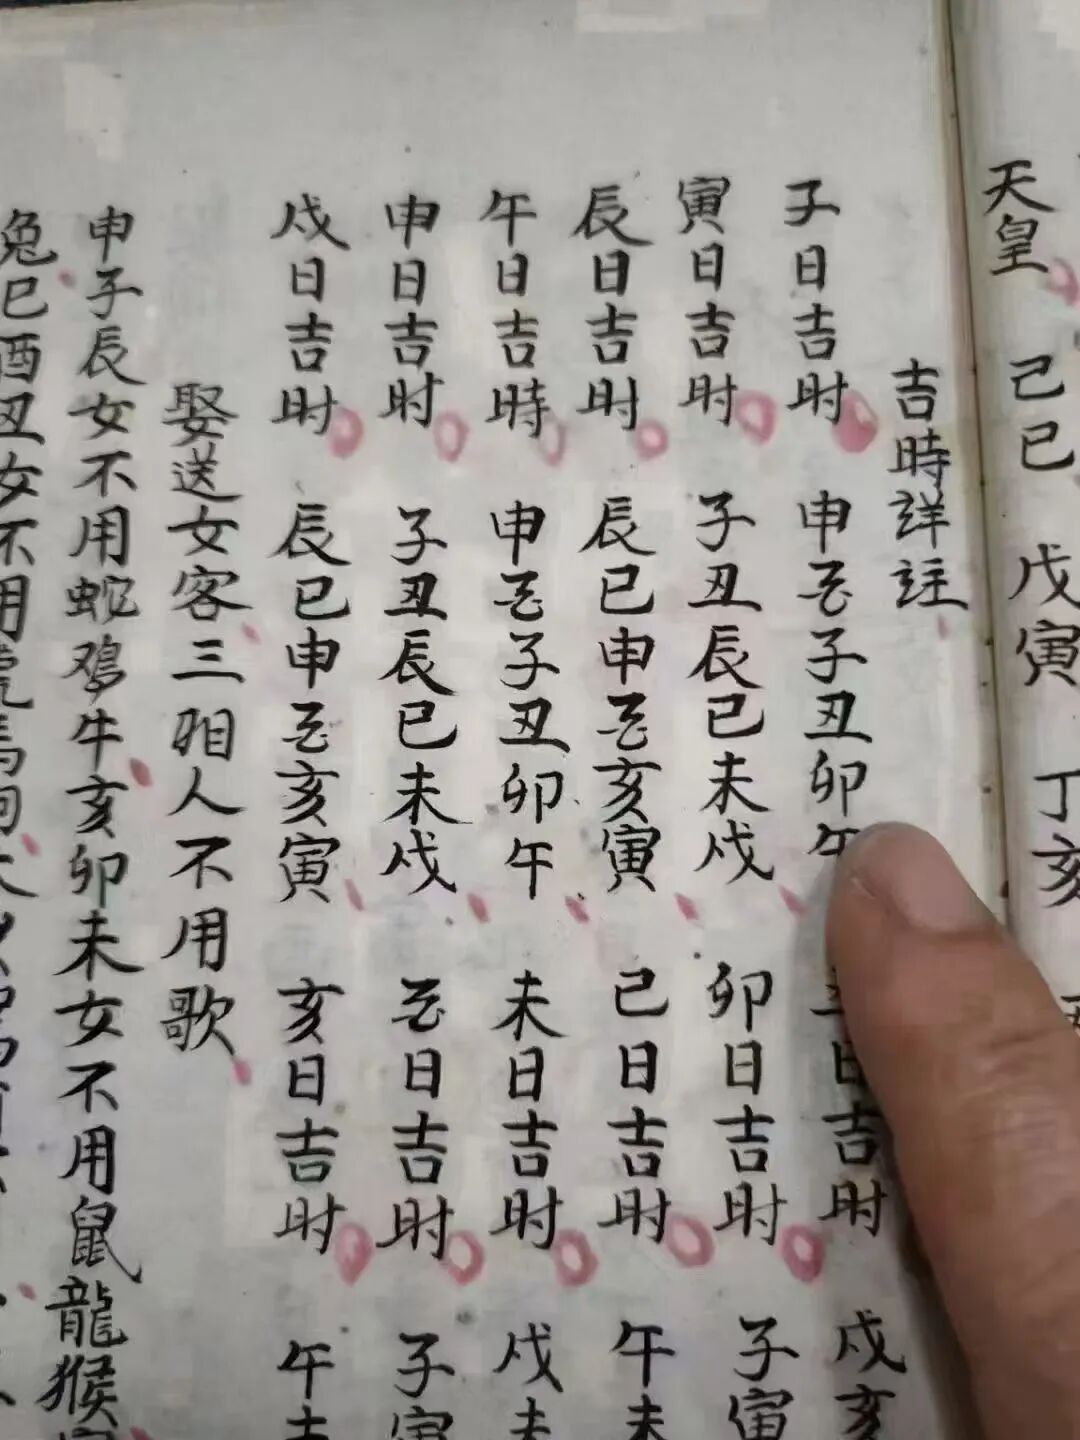 天皇 己巳 戊寅 丁亥
吉時詳註
子日吉时 申酉子丑卯午 丑日吉时 戌亥
寅日吉时 子丑辰巳未戌 卯日吉时 子寅
辰日吉时 辰巳申酉亥寅 己日吉时 午未
午日吉時 申酉子丑卯午 未日吉时 戌未
申日吉时 子丑辰巳未戌 酉日吉时 子寅
戌日吉时 辰巳申酉亥寅 亥日吉时 午未
娶送女客三相人不用歌
申子辰女不用蛇鸡牛亥卯未女不用鼠龍猴
兔巳酉丑女不用虎馬狗